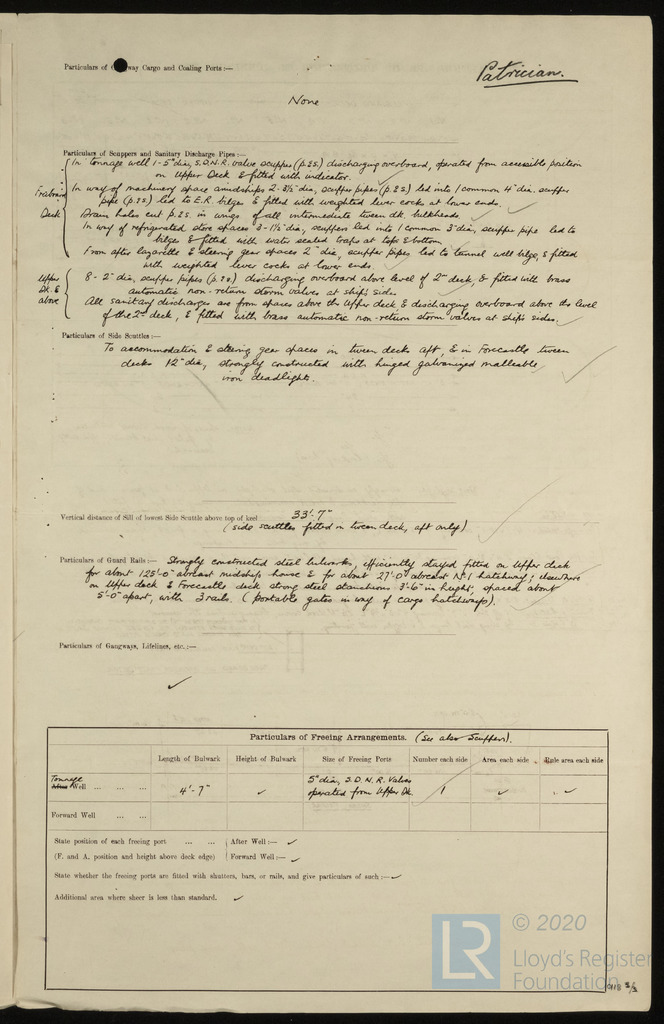 Particulars of Gangway Cargo and Coaling Ports :—
Patrician.
None
Particulars of Scuppers and Sanitary Discharge Pipes :—
In tonnage well 1-5" dia, S.D.N.R. valve scupper (p.&s.) discharging overboard, operated from accessible position
on Upper Deck & fitted with indicator.
Freeboard Deck
In way of machinery space amidships 2-3½" dia, scupper pipes (p.&s.) led into 1 common 4" dia. scupper
pipe (p.&s.) led to E.R. bilges & fitted with weighted lever cock at lower ends.
Drain holes cut p.&s. in wings of all intermediate tween dk. bulkheads.
In way of refrigerated store spaces 3-1½" dia, scuppers led into 1 common 3" dia, scupper pipe led to
bilge & fitted with water sealed traps at top & bottom.
From after lazarette & steering gear spaces 2" dia, scupper pipes led to tunnel well bilge, & fitted
with weighted lever cocks at lower ends.
Upper Dk. & above
8-2" dia, scupper pipes (p.&s.) discharging overboard above level of 2nd deck, & fitted with brass
automatic non-return storm valves at ship's side.
All sanitary discharges are from spaces above the Upper deck & discharging overboard above the level
of the 2nd deck, & fitted with brass automatic non-return storm valves at ship's sides.
Particulars of Side Scuttles :—
To accommodation & steering gear spaces in tween decks aft, & in Forecastle tween
decks 12" dia, strongly constructed with hinged galvanized malleable
iron deadlights.
Vertical distance of Sill of lowest Side Scuttle above top of keel 33'-7"
(side scuttles fitted in tween deck, aft only)
Particulars of Guard Rails :— Strongly constructed steel bulwarks, efficiently stayed fitted on Upper deck
for about 125'-0" abreast midship house & for about 27'-0" abreast No 1 hatchway; elsewhere
on Upper deck & Forecastle deck strong steel stanchions 3'-6" in height, spaced about
5'-0" apart, with 3 rails. (portable gates in way of cargo hatchways).
Particulars of Gangways, Lifelines, etc. :—
✓
Particulars of Freeing Arrangements. (See also Scuppers).
Length of Bulwark Height of Bulwark Size of Freeing Ports Number each side Area each side Rule area each side
Tonnage Well ... ... ... 4'-7" ✓ 5" dia, S.D.N.R. Valves operated from Upper Dk. 1 ✓ ✓
Forward Well ... ...
State position of each freeing port ... ... After Well :— ✓
(F. and A. position and height above deck edge) Forward Well :— ✓
State whether the freeing ports are fitted with shutters, bars, or rails, and give particulars of such :— ✓
Additional area where sheer is less than standard. ✓
LR © 2020
Lloyd's Register
Foundation